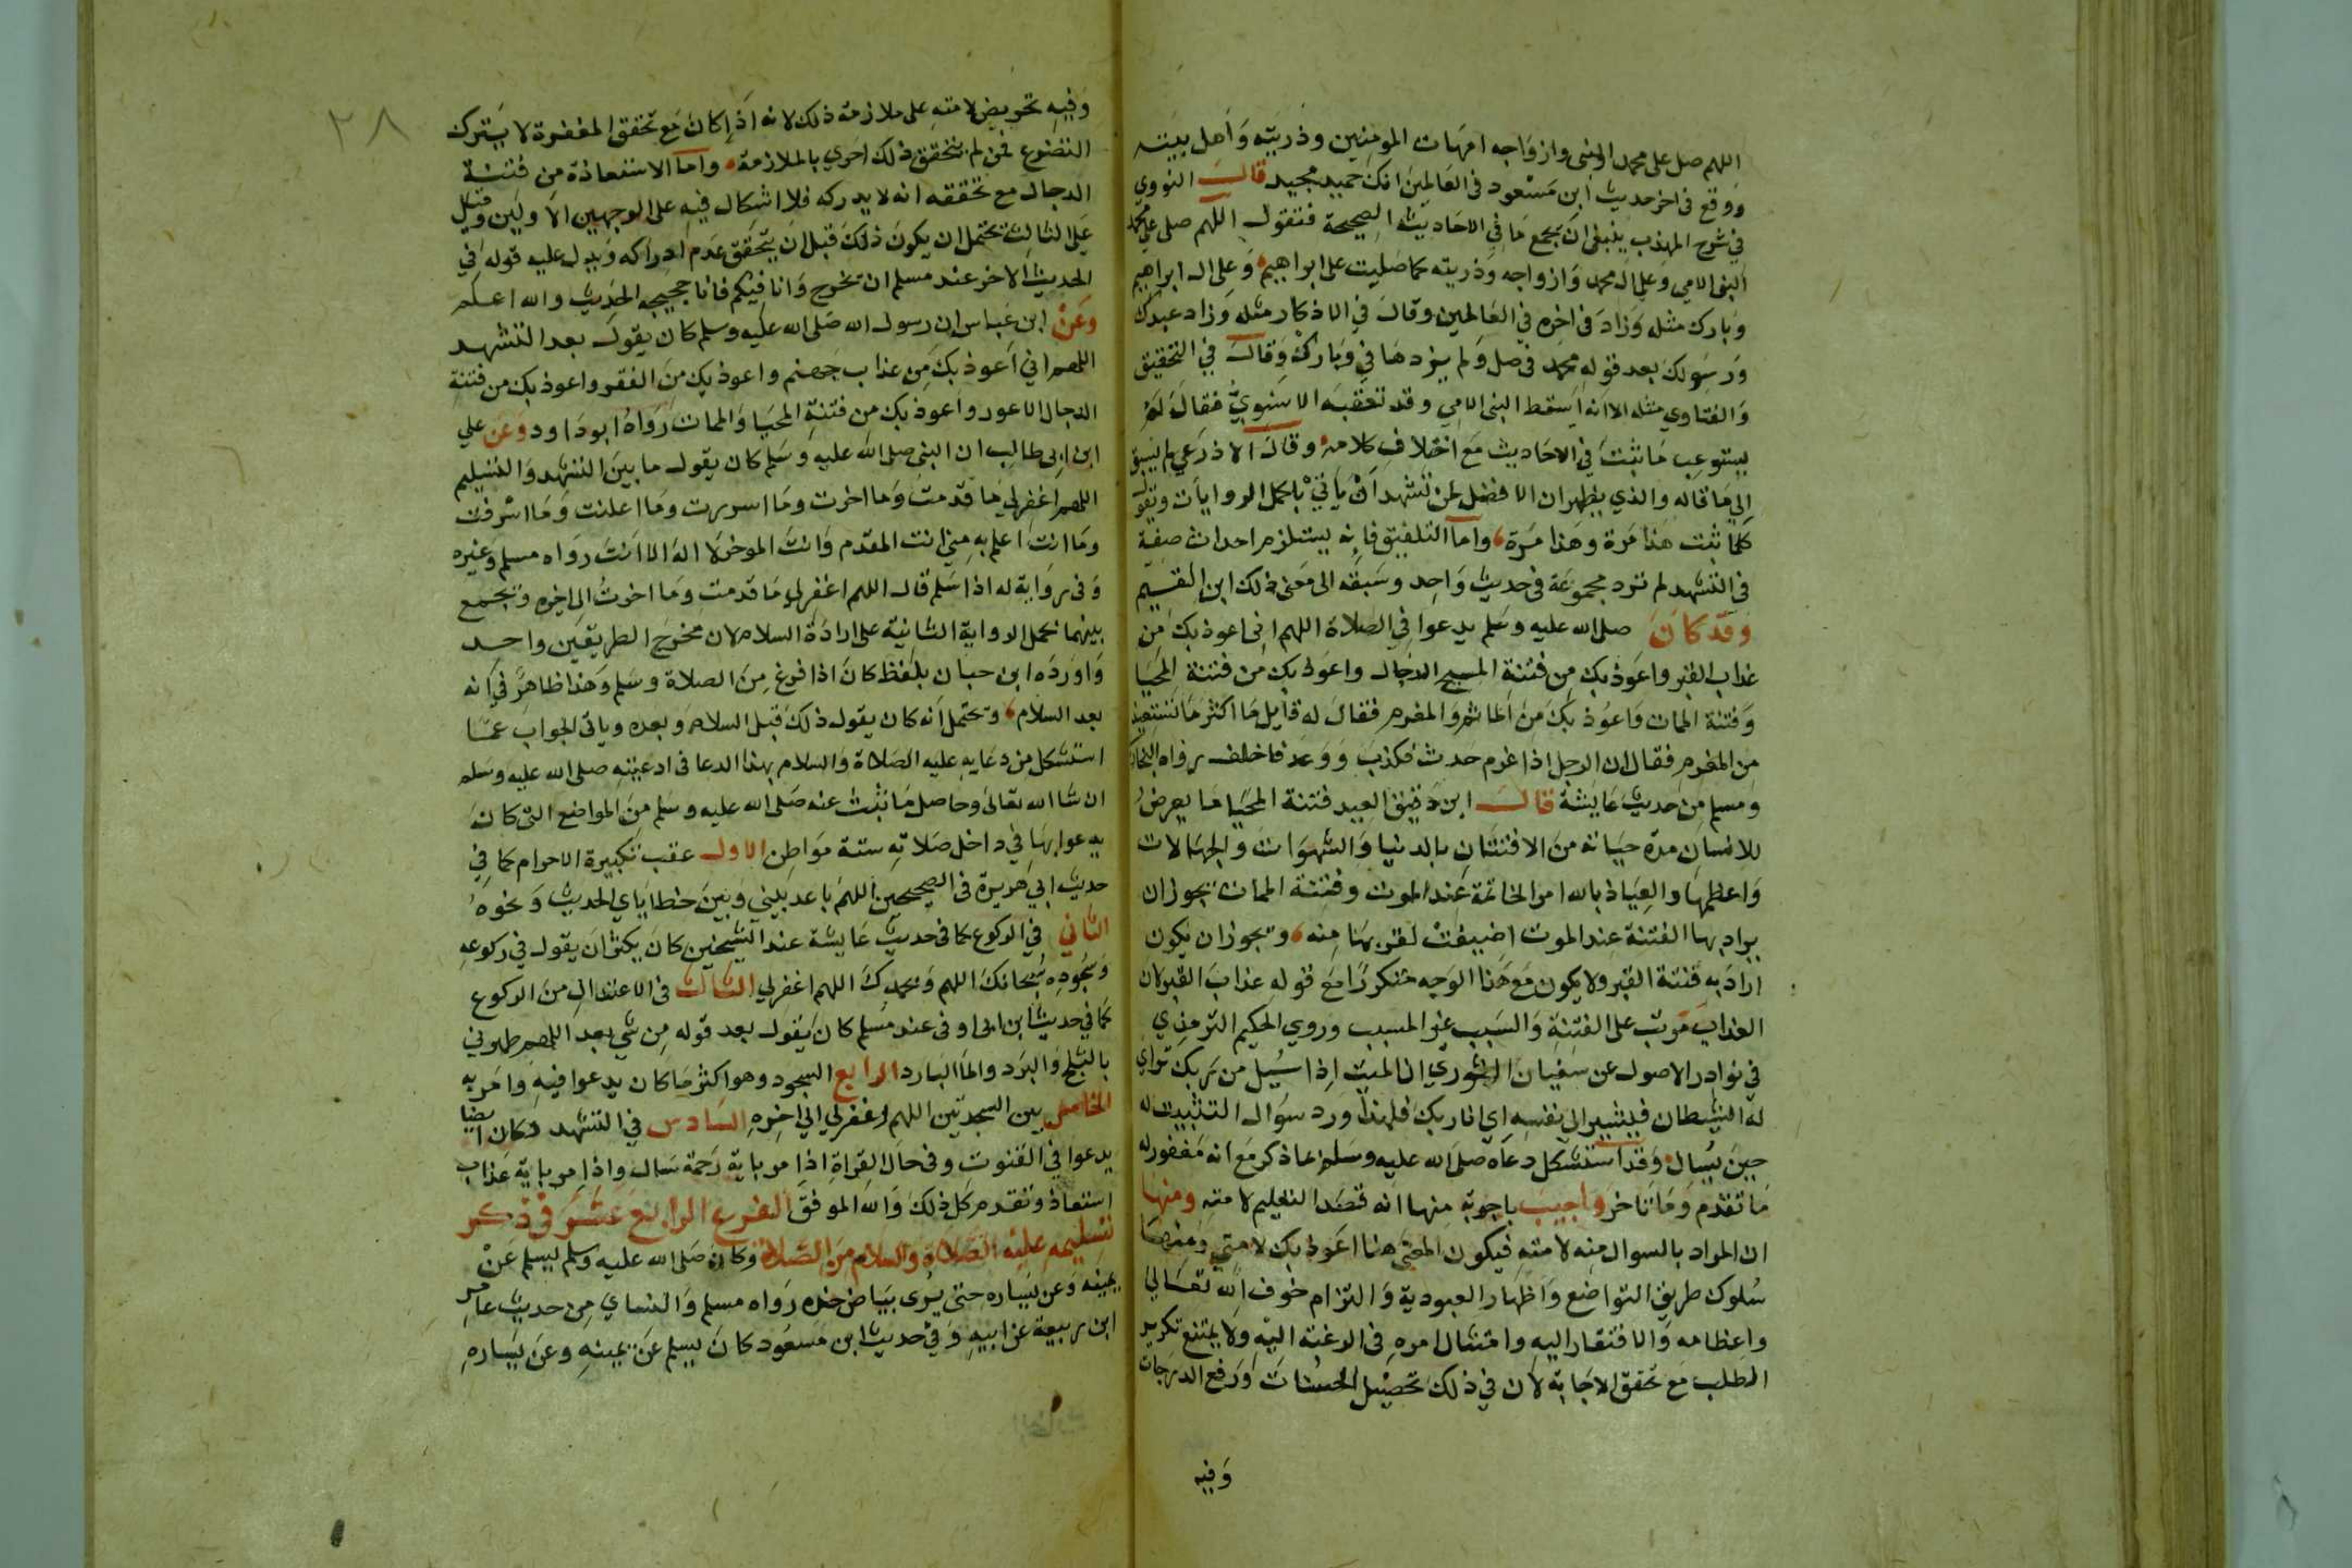 اللهم صل على محمد النبى وازواجه امهات المومنين وذريته وأهل بيته
ووقع فى اخر حديث ابن مسعود فى العالمين انك حميد مجيد قال النووي
في شرح المهذب ينبغى ان يجمع ما في الاحاديث الصحيحة فتقول اللهم صلى على محمد
النبى الامي وعلى ال محمد وازواجه وذريته كما صليت على ابراهيم وعلى ال ابراهيم
وبارك مثله وزاد فى اخره في العالمين وقال في الاذكار مثله وزاد عبدك
ورسولك بعد قوله محمد فى صل ولم يزدها في وبارك وقال في التحقيق
والفتاوي مثله الا انه اسقط النبى الامي وقد تعقبه الاسنوي فقال لم
يستوعب ما ثبت في الاحاديث مع اختلاف كلامه وقال الاذرعي لم يسبق
الى ما قاله والذي يظهر ان الافضل لمن تشهد ان ياتي باكمل الروايات ويقول
كلما ثبت هذا مرة وهذا مرة واما التلفيق فانه يستلزم احداث صفة
فى التشهد لم ترد مجموعة فى حديث واحد وسبقه الى معنى ذلك ابن القسيم
وقد كان صلى الله عليه وسلم يدعوا في الصلاة اللهم انى اعوذ بك من
عذاب القبر واعوذ بك من فتنة المسيح الدجال واعوذ بك من فتنة المحيا
وفتنة الممات واعوذ بك من الماثم والمغرم فقال له قايل ما اكثر ما تستعيذ
من المغرم فقال ان الرجل اذا غرم حدث فكذب ووعد فاخلف رواه البخاري
ومسلم من حديث عايشة قال ابن دقيق العيد فتنة المحيا ما يعرض
للانسان مدة حياته من الافتتان بالدنيا والشهوات والجهالات
واعظمها والعياذ بالله امر الخاتمة عند الموت وفتنة الممات يجوز ان
يراد بها الفتنة عند الموت اضيفت لقربها منه ويجوز ان يكون
اراد به فتنة القبر ولا يكون مع هذا الوجه متكررا مع قوله عذاب القبر لان
العذاب مرتب على الفتنة والسبب غير المسبب وروي الحكيم الترمذي
في نوادر الاصول عن سفيان الثوري ان الميت اذا سيل من ربك تراي
له الشيطان فيشير الى نفسه اي انا ربك فلهذا ورد سوال التثبيت له
حين يسال وقد استشكل دعاه صلى الله عليه وسلم بما ذكر مع انه مغفور له
ما تقدم وما تاخر واجيب باجوبة منها انه قصد التعليم لامته ومنها
ان المراد بالسوال منه لامته فيكون المعنى هنا اعوذ بك لامتي ومنها
سلوك طريق التواضع واظهار العبودية والتزام خوف الله تعالى
واعظامه والافتقار اليه وامتثال امره فى الرغبة اليه ولا يمتنع تكرير
الطلب مع تحقق الاجابة لان في ذلك تحصيل الحسنات ورفع الدرجات
وفيه
٢٨
وفيه تحريض لامته على ملازمة ذلك لانه اذا كان مع تحقق المغفرة لا يترك
التضرع فمن لم يتحقق ذلك احري بالملازمة واما الاستعاذة من فتنة
الدجال مع تحققه انه لا يدركه فلا اشكال فيه على الوجهين الاولين وقيل
على الثالث يحتمل ان يكون ذلك قبل ان يتحقق عدم ادراكه ويدل عليه قوله في
الحديث الاخر عند مسلم ان يخرج وانا فيكم فانا حجيجه الحديث والله اعلم
وعن ابن عباس ان رسول الله صلى الله عليه وسلم كان يقول بعد التشهد
اللهم اني اعوذ بك من عذاب جهنم واعوذ بك من الفقر واعوذ بك من فتنة
الدجال الاعور واعوذ بك من فتنة المحيا والممات رواه ابو داود وعن علي
ابن ابى طالب ان النبى صلى الله عليه وسلم كان يقول ما بين التشهد والتسليم
اللهم اغفر لي ما قدمت وما اخرت وما اسررت وما اعلنت وما اسرفت
وما انت اعلم به مني انت المقدم وانت الموخر لا اله الا انت رواه مسلم وغيره
وفى رواية له اذا سلم قال اللهم اغفر لي ما قدمت وما اخرت الى اخره ويجمع
بينهما بحمل الرواية الثانية على ارادة السلام لان مخرج الطريقين واحد
واورده ابن حبان بلفظ كان اذا فرغ من الصلاة وسلم وهذا ظاهر في انه
بعد السلام ويحتمل انه كان يقول ذلك قبل السلام وبعده وياتى الجواب عما
استشكل من دعايه عليه الصلاة والسلام بهذا الدعا فى ادعيته صلى الله عليه وسلم
ان شا الله تعالى وحاصل ما ثبت عنه صلى الله عليه وسلم من المواضع التى كان
يدعوا بها في داخل صلاته ستة مواطن الاول عقب تكبيرة الاحرام كما في
حديث ابي هريرة فى الصحيحين اللهم باعد بيني وبين خطاياي الحديث ونحوه
الثاني في الركوع كما فى حديث عايشة عند الشيخين كان يكثر ان يقول في ركوعه
وسجوده سبحانك اللهم وبحمدك اللهم اغفر لي الثالث فى الاعتدال من الركوع
كما في حديث ابن ابى اوفى عند مسلم كان يقول بعد قوله من شي بعد اللهم طهرني
بالثلج والبرد والما البارد الرابع السجود وهو اكثر ما كان يدعوا فيه وامر به
الخامس بين السجدتين اللهم اغفر لي الى اخره السادس في التشهد وكان ايضا
يدعوا في القنوت وفى حال القراة اذا مر باية رحمة سال واذا مر باية عذاب
استعاذ وتقدم كل ذلك والله الموفق الفرع الرابع عشر فى ذكر
تسليمه عليه الصلاة والسلام من الصلاة وكان صلى الله عليه وسلم يسلم عن
يمينه وعن يساره حتى يرى بياض خده رواه مسلم والنساي من حديث عامر
ابن ربيعة عن ابيه وفي حديث ابن مسعود كان يسلم عن يمينه وعن يساره